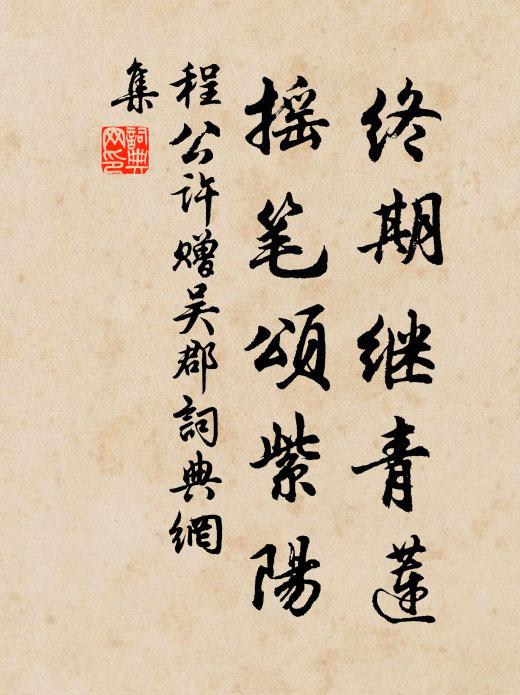 终期继青莲
摇笔颂紫陽
程公许赠吴郡詞典網
集
詞典
网印